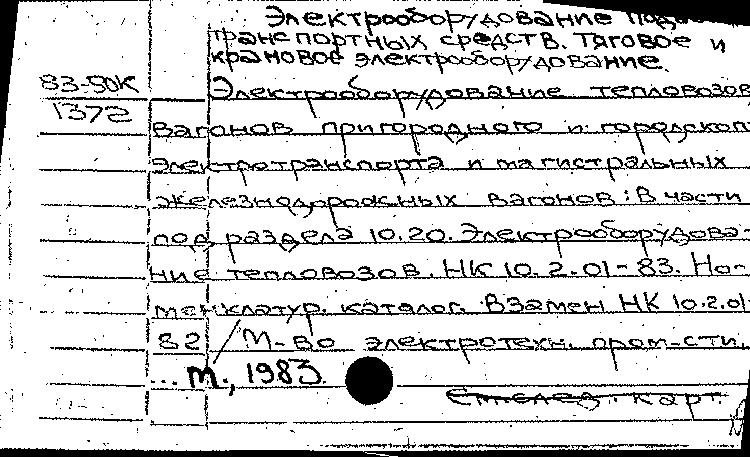 Электрооборудование
транспортных средств. Тяговое и
крановое электрооборудование.
83-50К
1372
Электрооборудование тепловозов
вагонов пригородного и городского
электротранспорта и магистральных
железнодорожных вагонов: В части
под раздела 10.20. Электрооборудова-
ние тепловозов. НК 10.2.01-83. Но-
менклатур. каталог. Взамен НК 10.2.01-
82 / М-во электротехн. пром-сти,
... М., 1983.
См. след. карт.